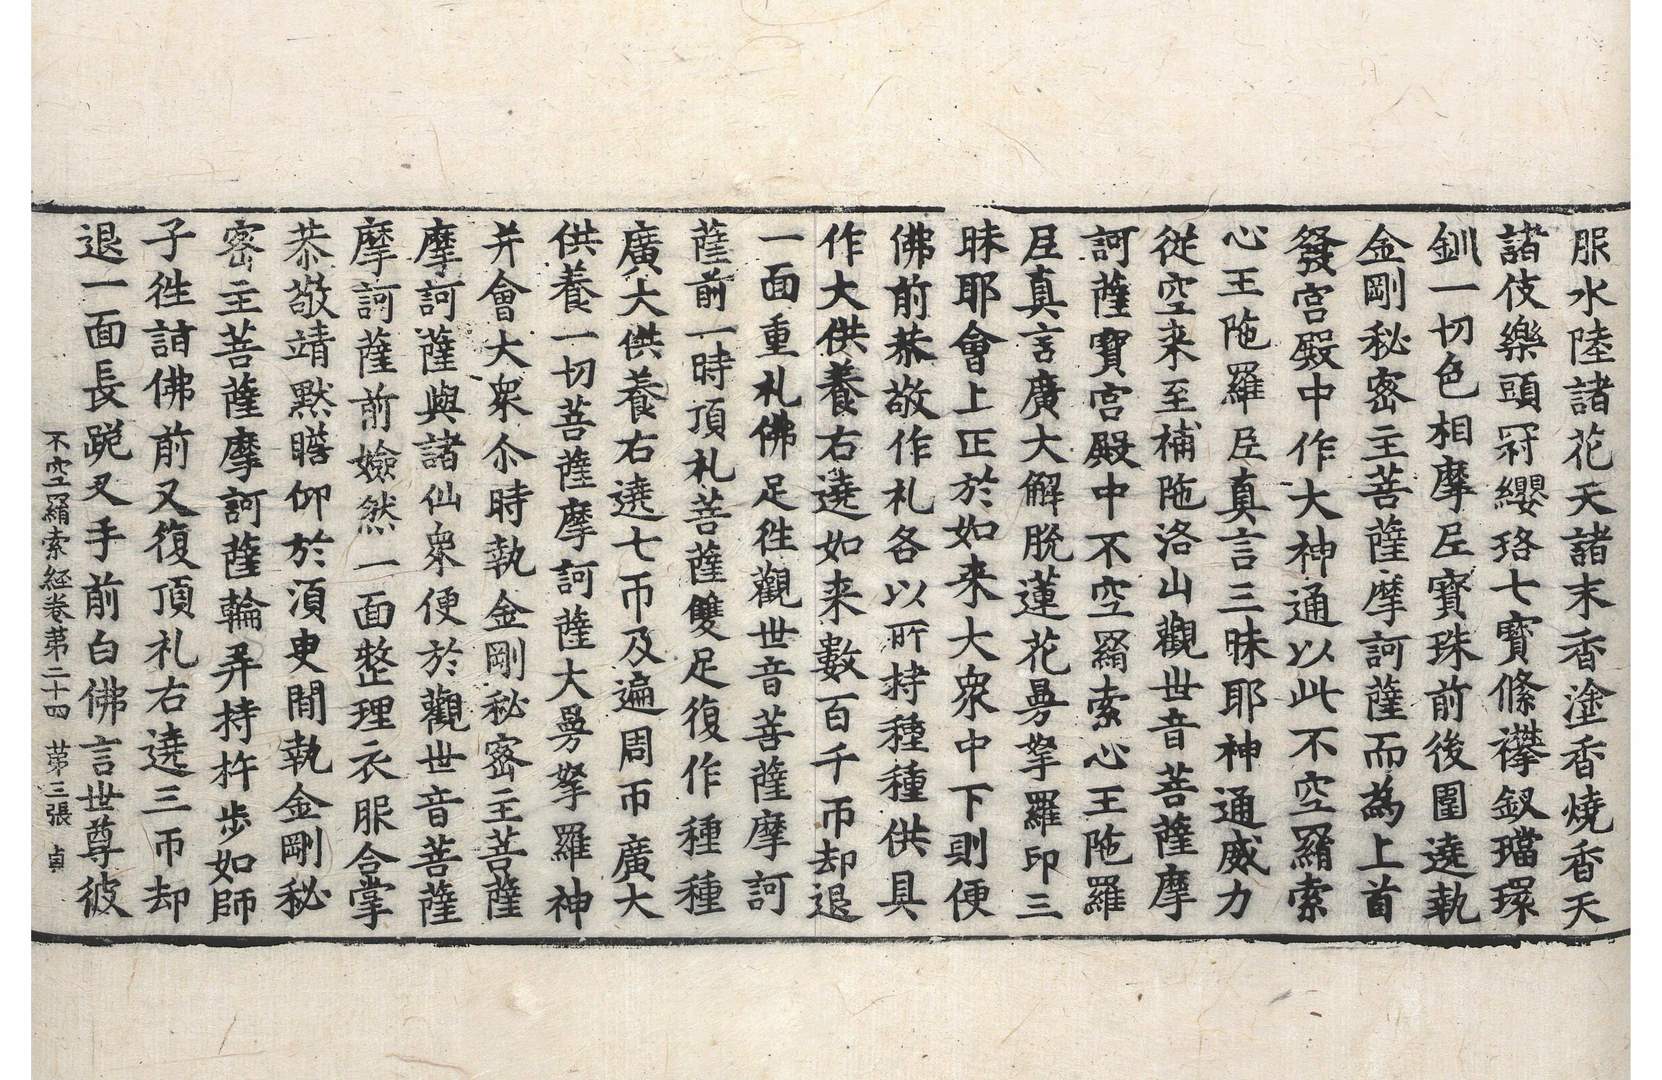 服水陸諸花天諸末香塗香燒香天
諸伎樂頭冠纓珞七寶絛襻釵璫環
釧一切色相摩𡰱寶珠前後圍遶執
金剛秘密主菩薩摩訶薩而為上首
發宮殿中作大神通以此不空羂索
心王陁羅𡰱真言三昧耶神通威力
從空来至補陁洛山觀世音菩薩摩
訶薩寶宮殿中不空羂索心王陁羅
𡰱真言廣大解脫蓮花曼拏羅印三
昧耶會上正於如来大衆中下則便
佛前恭敬作礼各以所持種種供具
作大供養右遶如来數百千帀却退
一面重礼佛足徃觀世音菩薩摩訶
薩前一時頂礼菩薩雙足復作種種
廣大供養右遶七帀及遍周帀廣大
供養一切菩薩摩訶薩大曼拏羅神
并會大衆尒時執金剛秘密主菩薩
摩訶薩與諸仙衆便於觀世音菩薩
摩訶薩前嬐然一面整理衣服合掌
恭敬靖默瞻仰於湏臾閒執金剛秘
密主菩薩摩訶薩輪弄持杵步如師
子徃詣佛前又復頂礼右遶三帀却
退一面長跪叉手前白佛言世尊彼
不空羂索経卷第二十四 第三張 貞